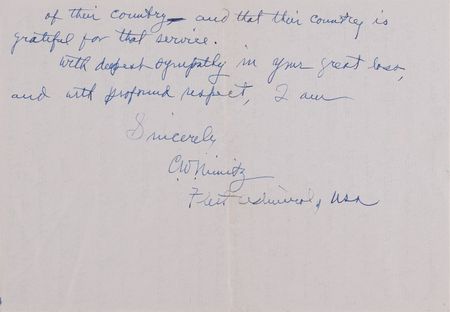 of their country, and that their country is
grateful for that service.
With deepest sympathy in your great loss,
and with profound respect, I am
Sincerely
C.W. Nimitz
Fleet Admiral, USN